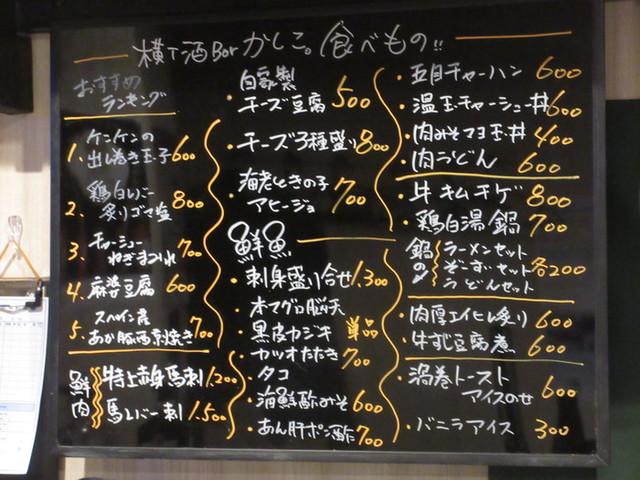 横丁酒Bar かしこ。食べもの!!
おすすめ
ランキング
1. ケンケンの
出し巻き玉子 600
2. 鶏白レバー
炙りゴマ塩 800
3. チャーシュー
ねぎまみれ 700
4. 麻婆豆腐 600
5. スペイン産
あか豚西京焼き 700
鮮肉
・特上赤身馬刺 1.200
・馬レバー刺 1.500
・自家製
チーズ豆腐 500
・チーズ3種盛り 800
・海老ときの子
アヒージョ 700
鮮魚
・刺身盛り合せ 1.300
・本マグロ脳天
・黒皮カジキ 単品
・カツオたたき 700
・タコ
・海鮮酢みそ 600
・あん肝ポン酢 700
・五目チャーハン 600
・温玉チャーシュー丼 600
・肉みそマヨ玉丼 400
・肉うどん 600
・牛キムチゲ 800
・鶏白湯鍋 700
鍋の〆
ラーメンセット
ぞーすいセット 各200
うどんセット
・肉厚エイヒレ炙り 600
・牛すじ豆腐煮 600
・渦巻トースト
アイスのせ 600
・バニラアイス 300